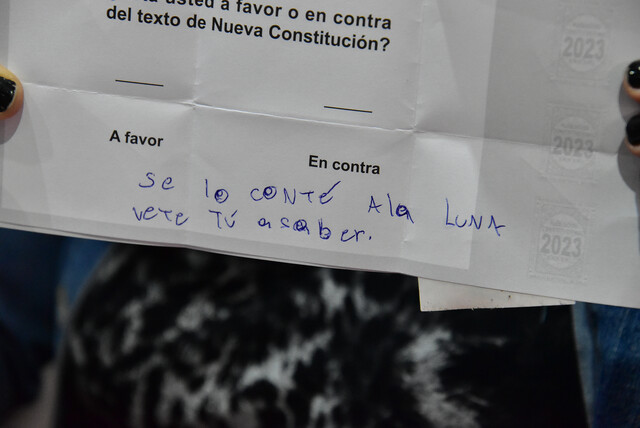 usted a favor o en contra
del texto de Nueva Constitución?
A favor
En contra
se lo CONTÉ Ala LUNA
vete TÚ asaber.
2023
2023
2023